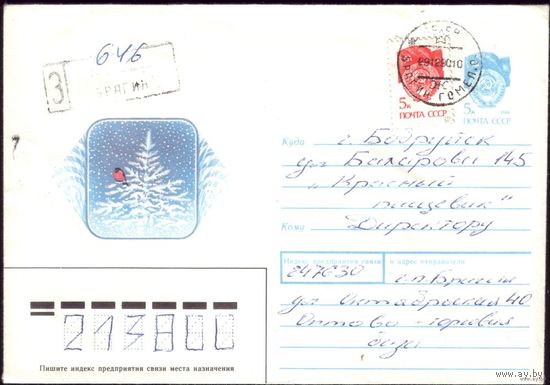 646
З
БРАГИН
5к
ПОЧТА СССР
5к
ПОЧТА СССР
СССР
29129010
БРАГИН ГОМЕЛ.
Куда г. Бобруйск
ул Бахарова 145
"Красный
пищевик"
Кому Директору
Индекс предприятия связи и адрес отправителя
247630 г.п. Брагин
ул Октябрьская 40
Оптово-торговая
база
213800
Пишите индекс предприятия связи места назначения
www.ay.by